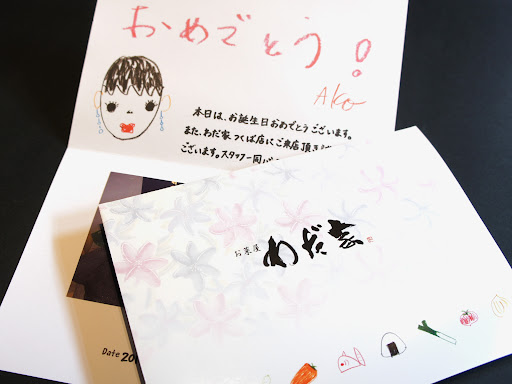 おめでとう!
Ako
本日は、お誕生日おめでとうございます。
また、わだ家 つくば店にご来店頂き
ございます。スタッフ一同
お菜屋
わだ家
Date 20